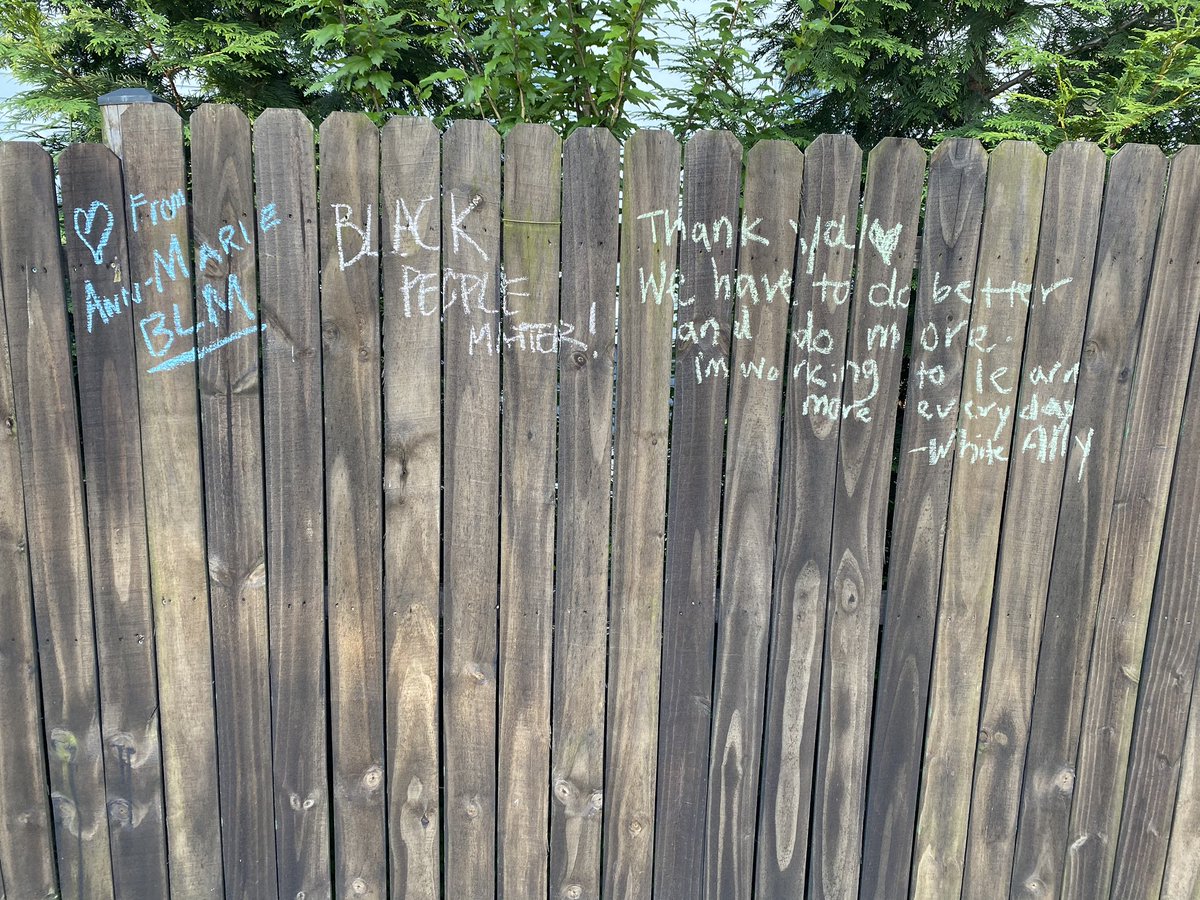 ♡ From
ANN-MARIE
BLM
BLACK
PEOPLE
MATTER!
Thank ya'l ♥
We have to do better
and do more.
I'm working to learn
more everyday
-White Ally